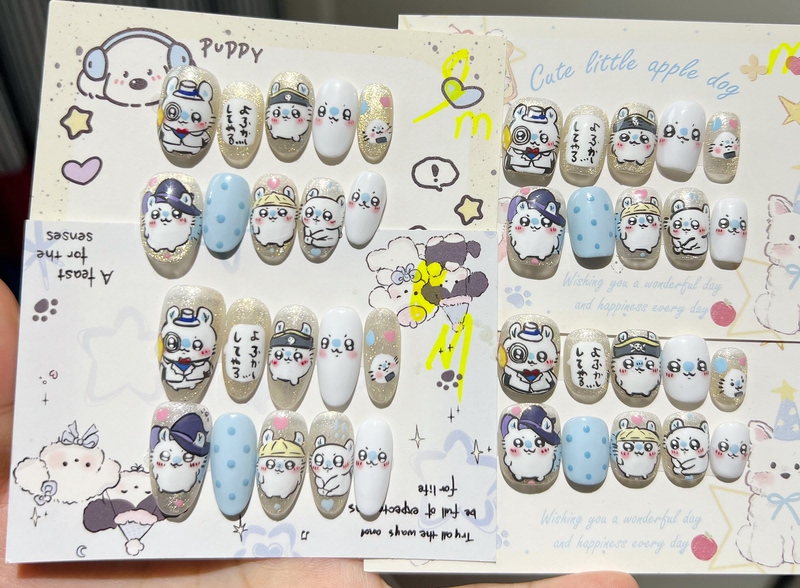 PUPPY
m
よふかし
してやる…
Cute little apple dog
m
よふかし
してやる…
Wishing you a wonderful day
and happiness every day
A feast
for the
senses
M
よふかし
してやる…
Try all the ways and
be full of expectations
for life
よふかし
してやる…
Wishing you a wonderful day
and happiness every day